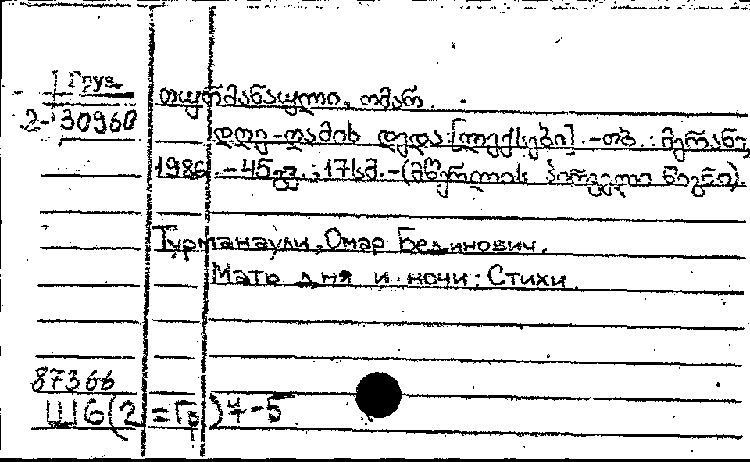 Груз.
2-30960
თურმანაული, ომარ.
დღე-ღამის დედა: [ლექსები]. -თბ. : მერანი,
1986. -45გვ. ; 17სმ. - (მწერლის პირველი წიგნი).
Турманаули, Омар Бединович.
Мать дня и ночи: Стихи.
87366
Ш6(2=Гр)7-5